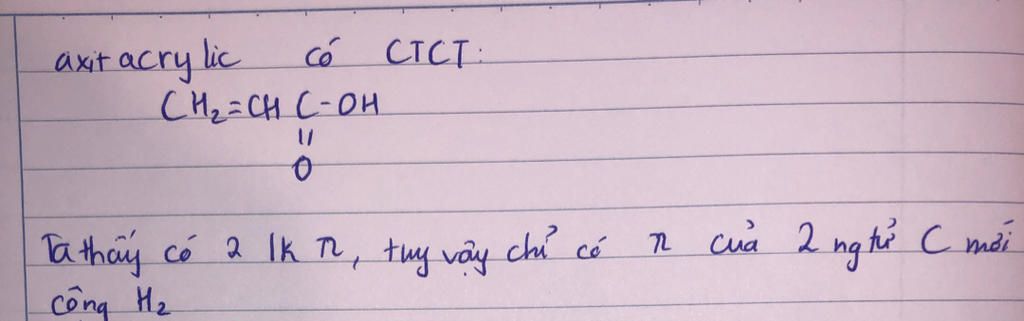 axit acrylic có CTCT:
CH₂=CH C-OH
||
O
Ta thấy có 2 lk π, tuy vậy chỉ có π của 2 ng tử C mới
cộng H₂